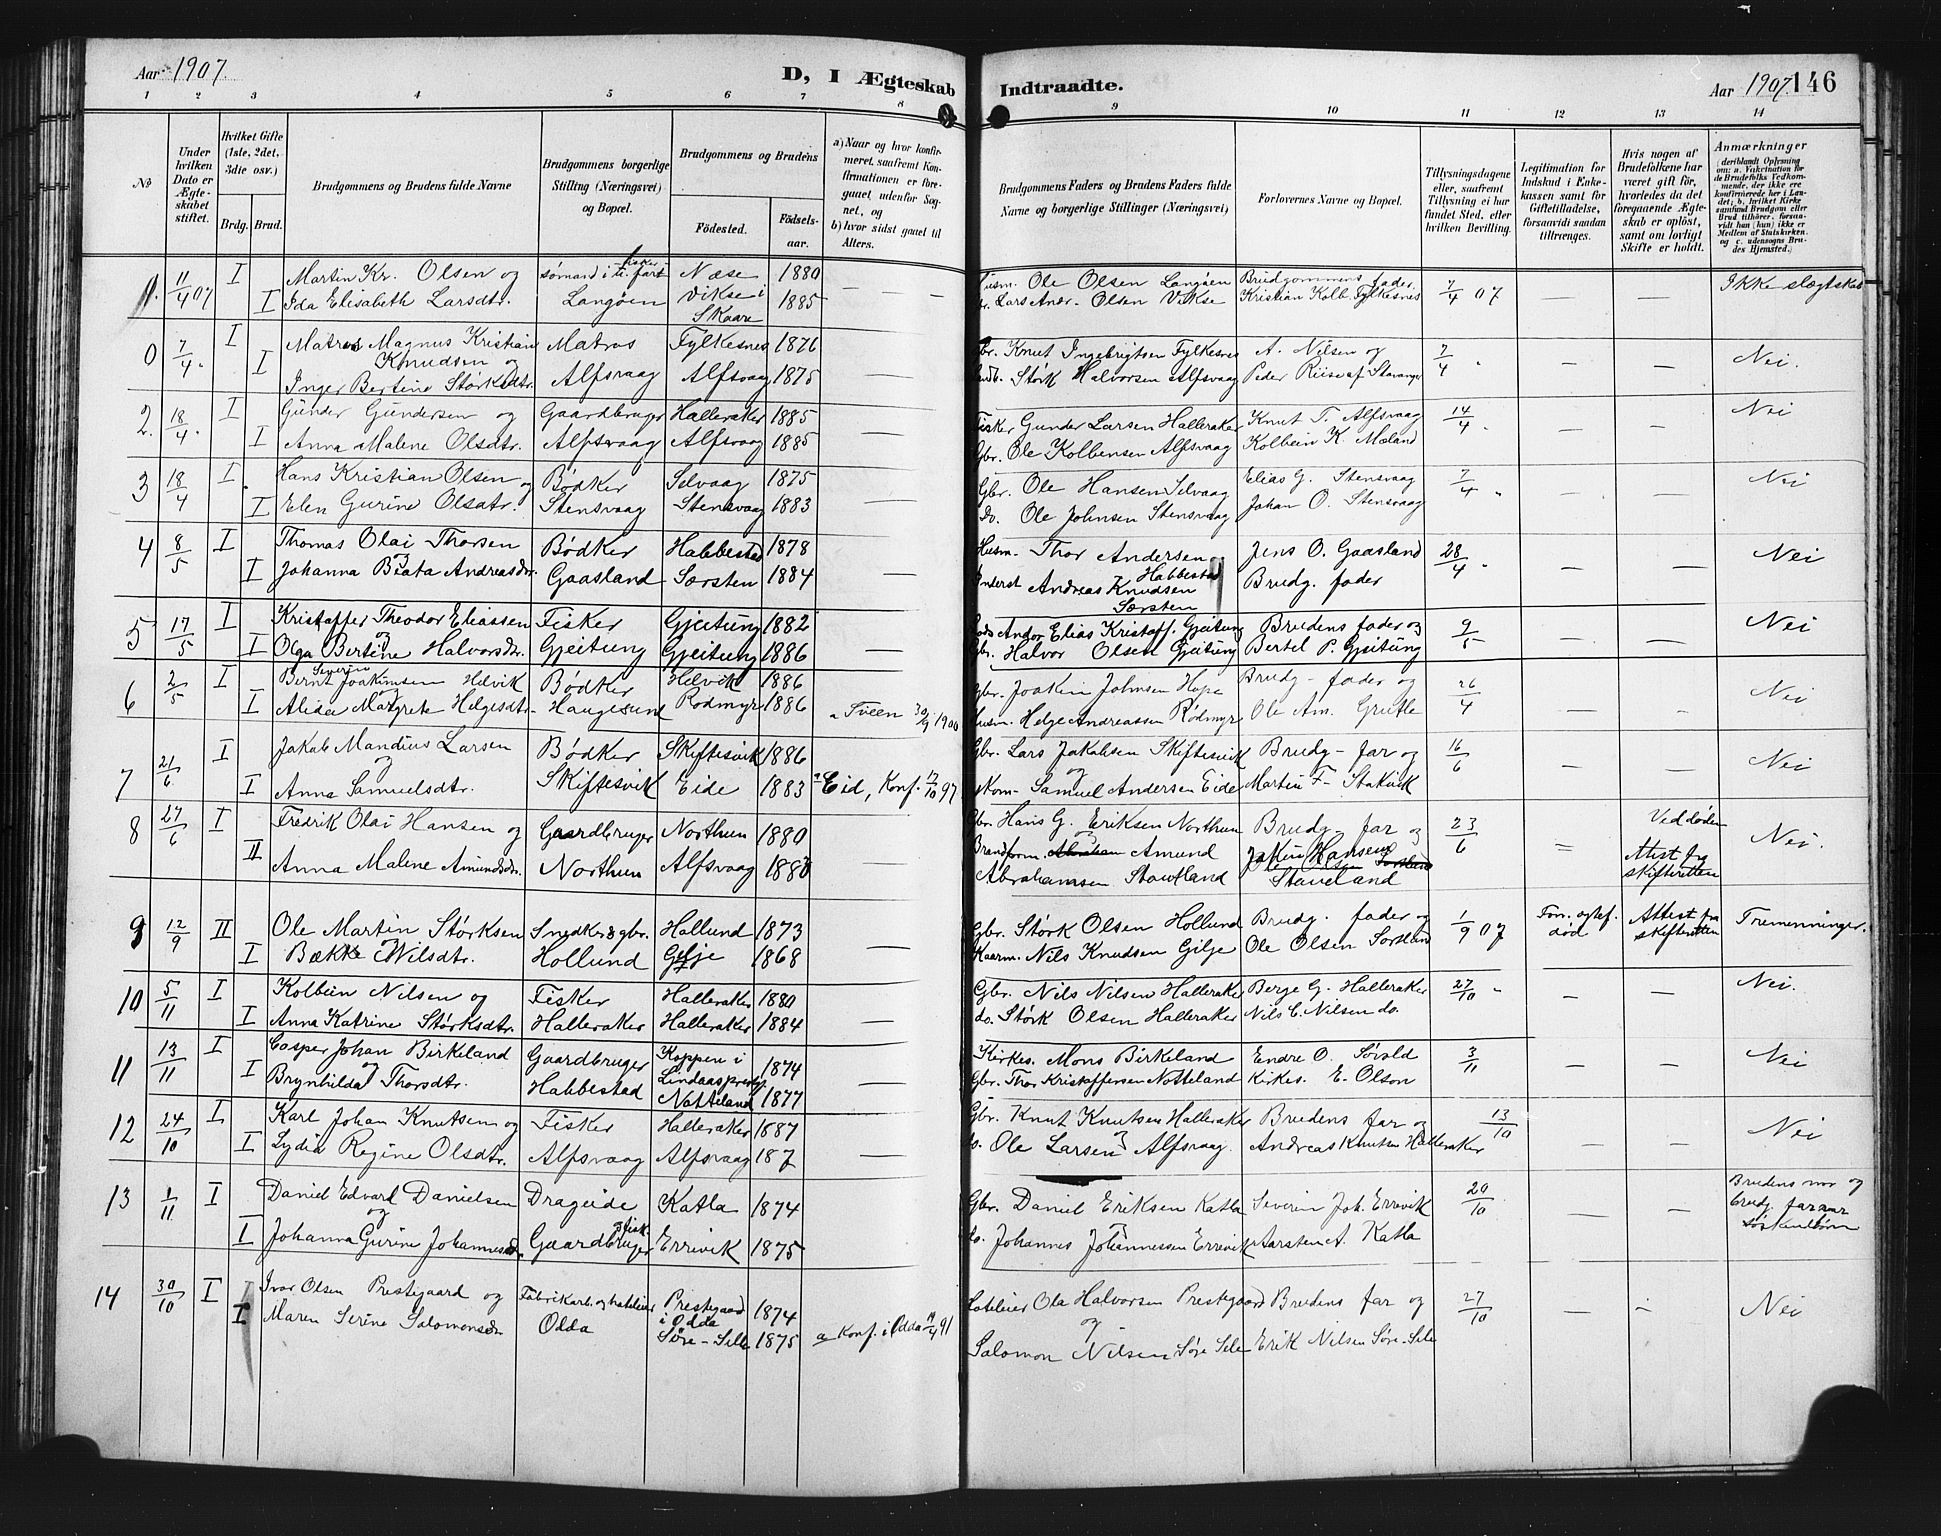 Aar 1907.
D, I Ægteskab Indtraadte.
Aar 1907. 146
1 2 3 4 5 6 7 8 9 10 11 12 13 14
No
Under hvilken Dato er Ægteskabet stiftet.
Hvilket Gifte (1ste, 2det, 3die osv.)
Brdg. Brud.
Brudgommens og Brudens fulde Navne
Brudgommens borgerlige Stilling (Næringsvei) og Bopæl.
Brudgommens og Brudens
Födested. Födselsaar.
a) Naar og hvor konfirmeret, saafremt Konfirmationen er foregaaet udenfor Sognet, og
b) hvor sidst gaaet til Alters.
Brudgommens Faders og Brudens Faders fulde Navne og borgerlige Stillinger (Næringsvei)
Forlovernes Navne og Bopæl.
Tillysningsdagene eller, saafremt Tillysning ei har fundet Sted, efter hvilken Bevilling.
Legitimation for Indskud i Enkekassen samt for Giftetilladelse, forsaavidt saadan tiltrænges.
Hvis nogen af Brudefolkene har været gift för, hvorledes da det foregaaende Ægteskab er oplöst, samt om lovligt Skifte er holdt.
Anmærkninger
(deriblandt Oplysning om: a. Vaccination for de Brudefolks Vedkommende, der ikke ere konfirmerede her i Landet; b. hvilket Kirkesamfund Brudgom eller Brud tilhörer, forsaavidt han (hun) ikke er Medlem af Statskirken, og c. udensogns Brudes Hjemsted.)
11/4 07 I Martin Kr. Olsen og sømand i u. fart Næse 1880 — Husm. Ole Olsen Langöen Brudgommens fader 7/4 07 — — Ikke slægtskab
I Ida Elisabeth Larsdtr. Langöen Vikse i Skaare 1885 Lars Andr. Olsen Vikse Kristian Kolb. Fylkesnes
0 7/4 I Matros Magnus Kristian Knudsen og Matros Fylkesnes 1876 — Gbr. Knut Ingebrigtsen Fylkesnes A. Nilsen og 7/4 — — Nei.
I Inger Bertine Størksdtr. Alfsvaag Alfsvaag 1875 Størk Halvorsen Alfsvaag Peder Riise af Stavanger
2. 18/4. I Gunder Gundersen og Gaardbruger Halleraker 1885 — Fisker Gunder Larsen Halleraker Knut T. Alfsvaag 14/4 — — Nei
I Anna Malene Olsdtr. Alfsvaag Alfsvaag 1885 Gbr. Ole Kolbensen Alfsvaag Kolbein K. Mæland
3 18/4 I Hans Kristian Olsen og Bødker Selvaag 1875 — Gbr. Ole Hansen Selvaag Elias G. Stensvaag 7/4 — — Nei
I Elen Gurine Olsdtr. Stensvaag Stensvaag 1883 do. Ole Johnsen Stensvaag Johan O. Stensvaag
4 8/5 I Thomas Olai Thorsen Bødker Habbestad 1878 Husm. Thor Andersen Habbestad Jens O. Gaasland 28/4 — — Nei
I og Johanna Beata Andreasdtr. Gaasland Særsten 1884 Inderst Andreas Knudsen Særsten Brudg. fader
5 17/5 I Kristoffer Theodor Eliassen Fisker Gjeitung 1882 — Elias Kristoff. Gjeitung Brudens fader og 9/5 — — Nei
I og Olga Bertine Halvorsdr. Gjeitung Gjeitung 1886 Gbr. Halvor Olsen Gjeitung Bertel P. Gjeitung
6 2/5 I Bernt Severin Joakimsen Helvik Bødker Helvik 1886 Gbr. Joakim Johnsen Hope Brudg. fader og 26/4 — — Nei
I og Alida Margrete Helgesdtr. Haugesund Rödmyr 1886 a Sveen 30/9 1900 Husm. Helge Andreassen Rödmyr Ole Am. Grutle
7 21/6 I Jakob Mandius Larsen Bødker Skiftesvik 1886 Gbr. Lars Jakobsen Skiftesvik Brudg. far og 16/6 — — Nei
I og Anna Samuelsdtr. Skiftesvik Eide 1883 a Eid, Konf. 17/10 97 og Samuel Andersen Eide Martin F. Stakvik
8 27/6 I Fredrik Olai Hansen og Gaardbruger Northun 1880 — Gbr. Hans G. Eriksen Northun Brudg. far og 23/6 — Ved döden Nei.
II Anna Malene Amundsdtr. Northun Alfsvaag 1880 — Brandform. Amund Abrahamsen Stautland Hansen Stautland Attest fra skifteretten
9 12/9 II Ole Martin Størksen Snedker & gbr. Hollund 1873 — Gbr. Størk Olsen Hollund Brudg. fader og 1/9 07 For. egtef. död Attest fra skifteretten Tremenninger.
I og Bække Nilsdtr. Hollund Gilje 1868 Kaarm. Nils Knudsen Gilje Ole Olsen Sortland
10 5/11 I Kolbein Nilsen og Fisker Halleraker 1880 — Gbr. Nils Nilsen Halleraker Berge G. Halleraker 27/10 — — Nei.
I Anna Katrine Størksdtr. Halleraker Halleraker 1884 do. Størk Olsen Halleraker Nils C. Nilsen do.
11 13/11 I Casper Johan Birkeland Gaardbruger Koppen i Lindaas prestgj. 1874 — Kirkes. Mons Birkeland Endre O. Sørold 3/11 — — Nei
I og Brynhilda Thorsdtr. Habbestad Notteland 1877 Gbr. Thor Kristoffersen Notteland Kirkes. E. Olson
12 24/10 I Karl Johan Knutsen og Fisker Halleraker 1887 — Gbr. Knut Knutsen Halleraker Brudens far og 13/10 — — Nei
I Lydia Regine Olsdtr. Alfsvaag Alfsvaag 187 do. Ole Larsen Alfsvaag Andreas Knutsen Halleraker
13 1/11 I Daniel Edvard Danielsen Drageide Katla 1874 Gbr. Daniel Eriksen Katla Severin Joh. Errevik 20/10 Brudens mor og brudg. far er søskenbörn
I og Johanna Gurine Johannesd. Gaardbruger & fisk. Errevik 1875 do. Johannes Johannessen Errevik Aarsten A. Katla
14 30/10 I Ivar Olsen Prestegaard og Fabrikarb. og hotelleier Prestegaard i Odda 1874 Hotelleier Ola Halvorsen Prestegaard Brudens far og 27/10 — — Nei
I Maren Serine Salomonsdtr Odda Søre-Sille 1875 a Konf. i Odda 19/4 91 og Salomon Nilsen Søre Sele Erik Nilsen Søre-Sele